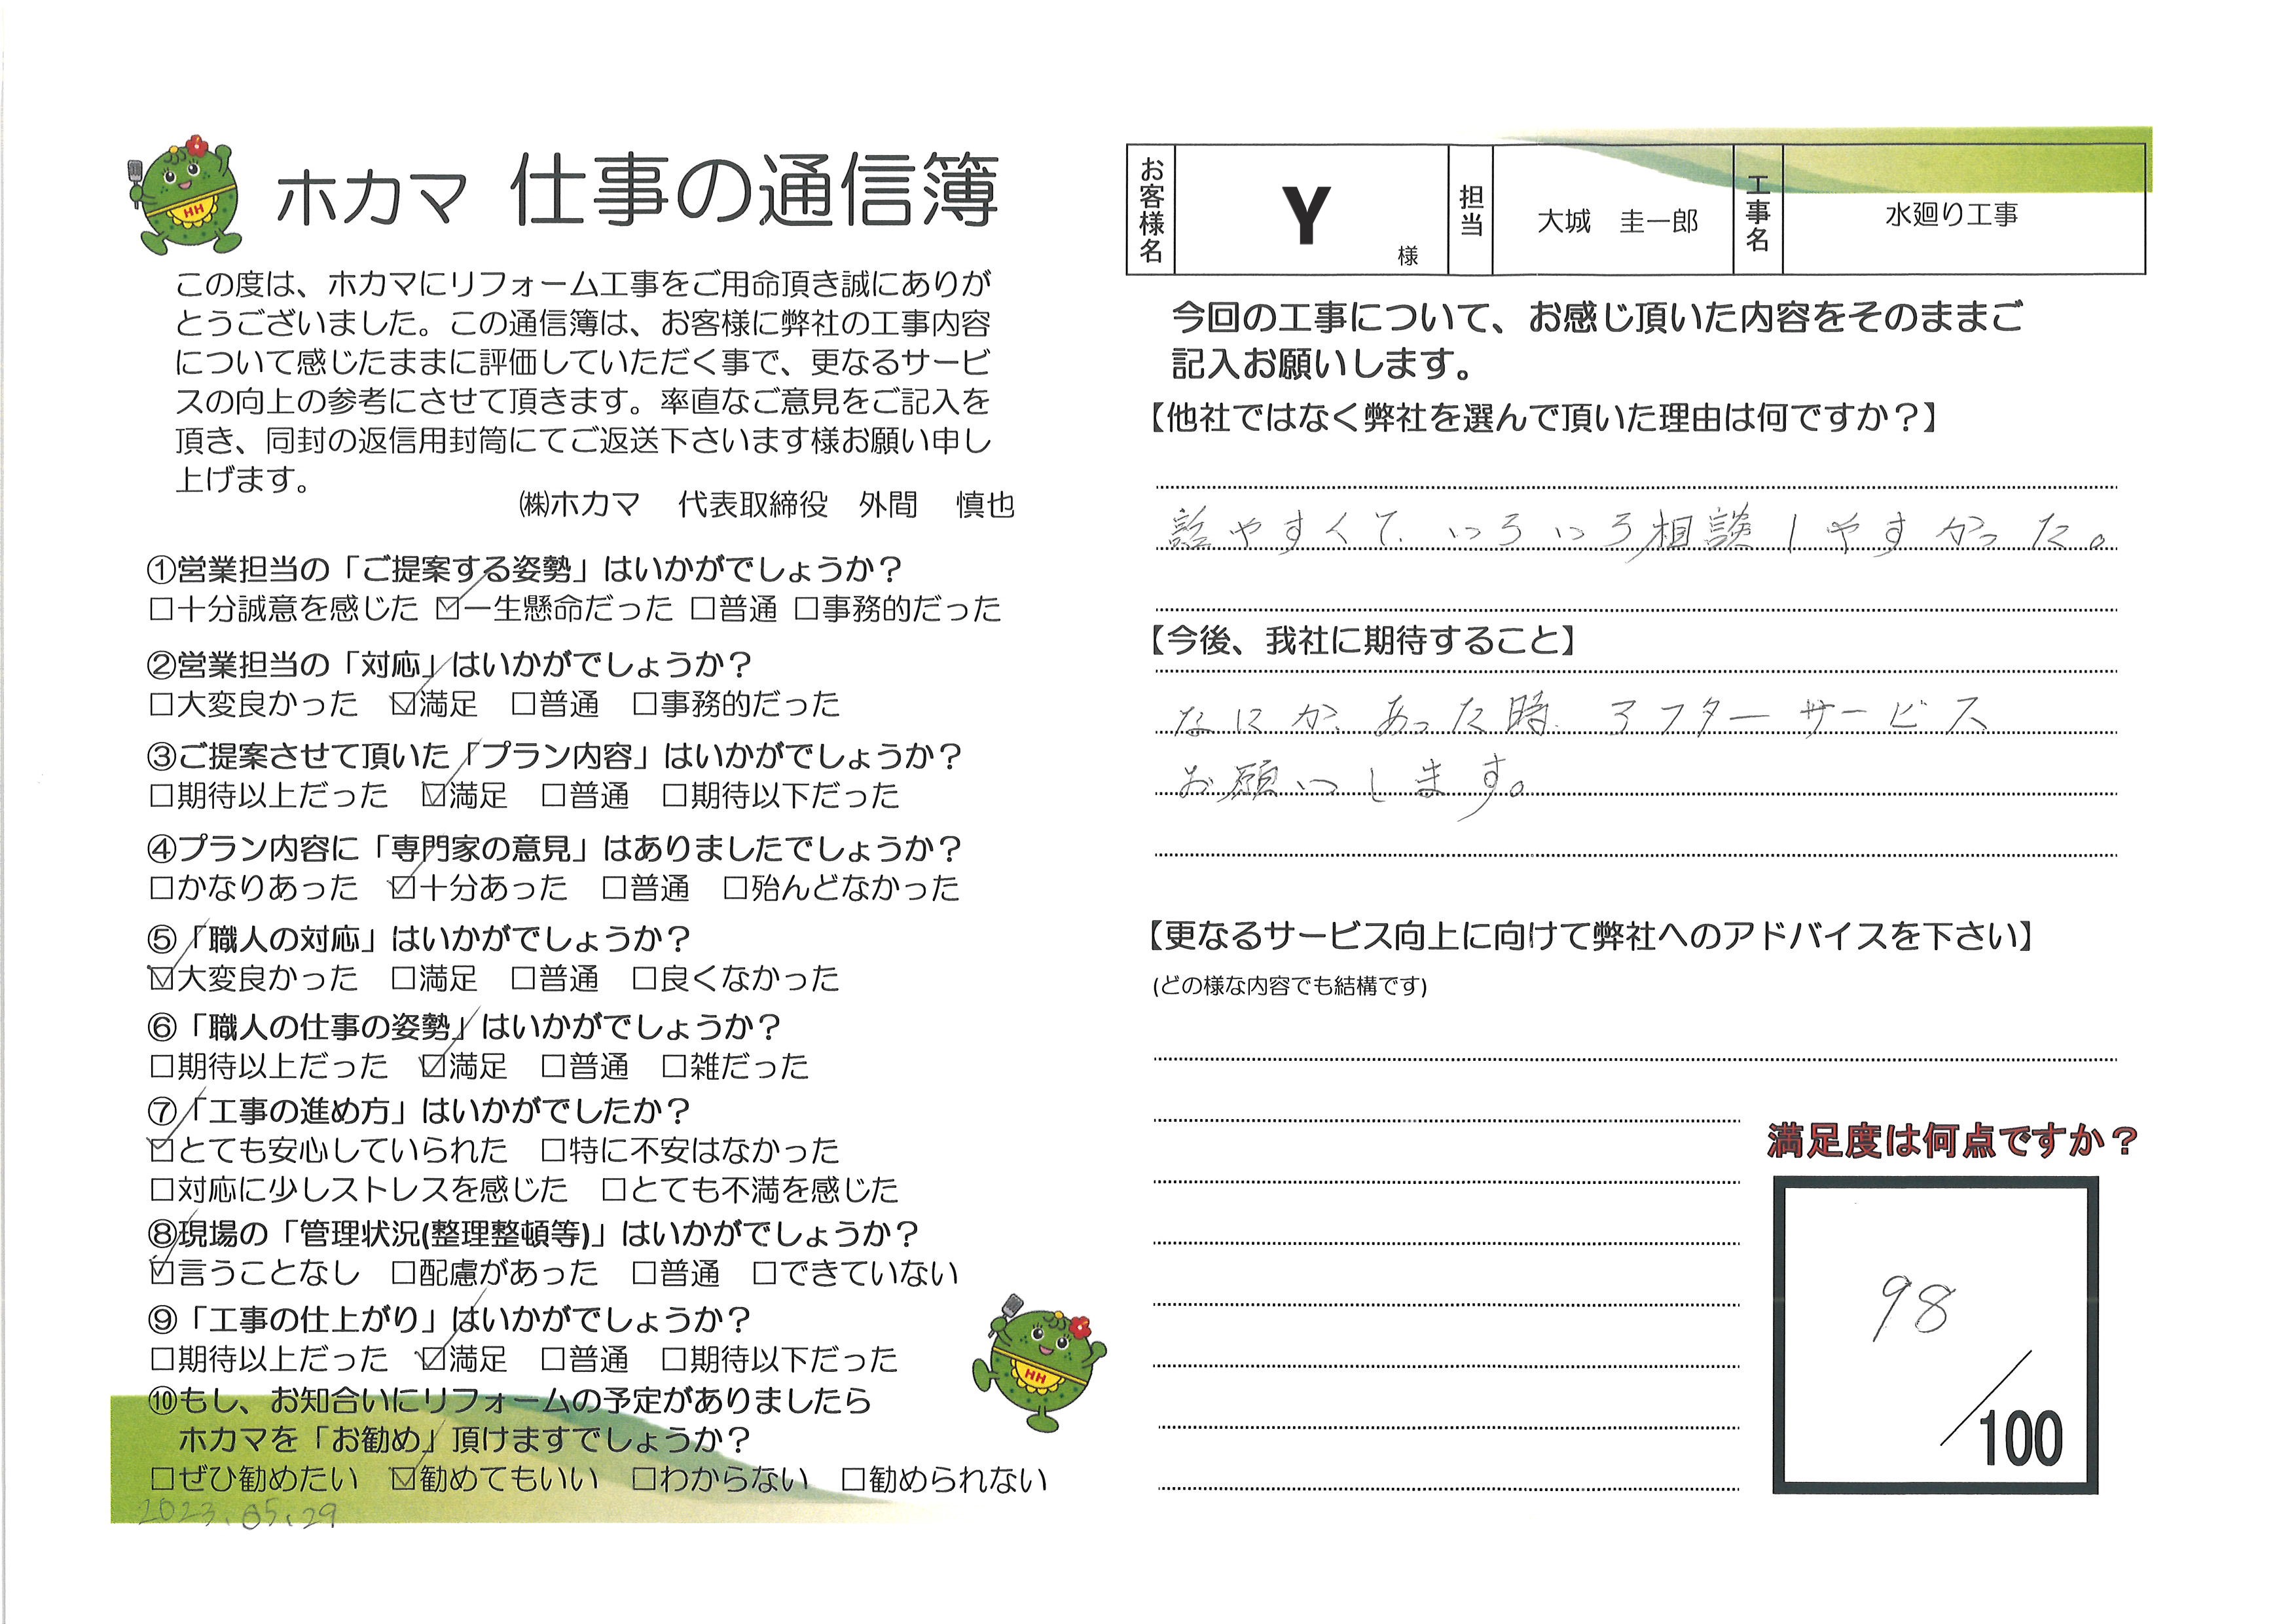 ホカマ 仕事の通信簿
この度は、ホカマにリフォーム工事をご用命頂き誠にありが
とうございました。この通信簿は、お客様に弊社の工事内容
について感じたままに評価していただく事で、更なるサービ
スの向上の参考にさせて頂きます。率直なご意見をご記入を
頂き、同封の返信用封筒にてご返送下さいます様お願い申し
上げます。
㈱ホカマ 代表取締役 外間 慎也
①営業担当の「ご提案する姿勢」はいかがでしょうか？
□十分誠意を感じた ☑一生懸命だった □普通 □事務的だった
②営業担当の「対応」はいかがでしょうか？
□大変良かった ☑満足 □普通 □事務的だった
③ご提案させて頂いた「プラン内容」はいかがでしょうか？
□期待以上だった ☑満足 □普通 □期待以下だった
④プラン内容に「専門家の意見」はありましたでしょうか？
□かなりあった ☑十分あった □普通 □殆んどなかった
⑤「職人の対応」はいかがでしょうか？
☑大変良かった □満足 □普通 □良くなかった
⑥「職人の仕事の姿勢」はいかがでしょうか？
□期待以上だった ☑満足 □普通 □雑だった
⑦「工事の進め方」はいかがでしたか？
☑とても安心していられた □特に不安はなかった
□対応に少しストレスを感じた □とても不満を感じた
⑧現場の「管理状況(整理整頓等)」はいかがでしょうか？
☑言うことなし □配慮があった □普通 □できていない
⑨「工事の仕上がり」はいかがでしょうか？
□期待以上だった ☑満足 □普通 □期待以下だった
⑩もし、お知合いにリフォームの予定がありましたら
ホカマを「お勧め」頂けますでしょうか？
□ぜひ勧めたい ☑勧めてもいい □わからない □勧められない
2023.05.29
HH
HH
お客様名 Y 様 担当 大城 圭一郎 工事名 水廻り工事
今回の工事について、お感じ頂いた内容をそのままご
記入お願いします。
【他社ではなく弊社を選んで頂いた理由は何ですか？】
話やすくて、いろいろ相談しやすかった。
【今後、我社に期待すること】
なにかあった時、アフターサービス
お願いします。
【更なるサービス向上に向けて弊社へのアドバイスを下さい】
(どの様な内容でも結構です)
満足度は何点ですか？
98
/100